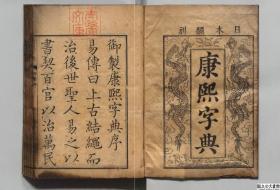 日本翻刻
康熙字典
御製康熙字典序
易傳曰上古結繩而
治後世聖人易之以
書契百官以治萬民